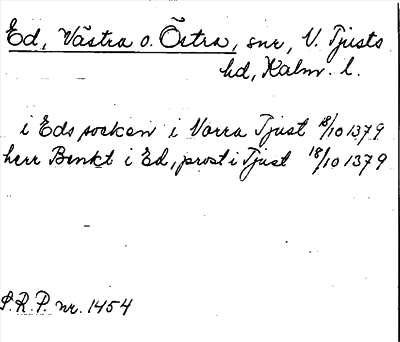 Ed, Västra o. Östra, snr, V. Tjusts
hd, Kalm. l.
i Eds socken i Norra Tjust 18/10 1379
herr Benkt i Ed, prost i Tjust 18/10 1379
S.R.P. nr. 1454